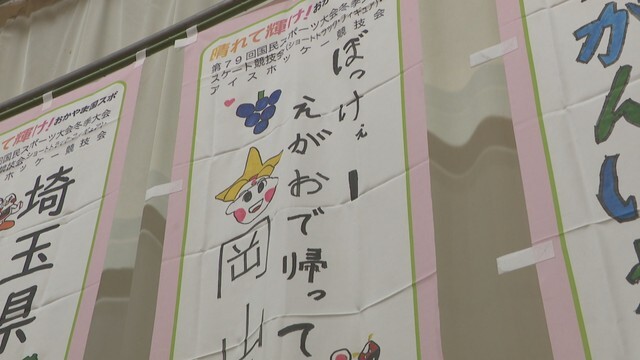 晴れて輝け!おか
第79回国民スポーツ大会冬季大
スケート競技会(ショートトラック・フィギュア)
アイスホッケー競技会
ぼっけぇー
えがおで帰って
岡山
て輝け!おかやま国スポ
国民スポーツ大会冬季大会
ホッケー競技会
埼玉県
かんいや